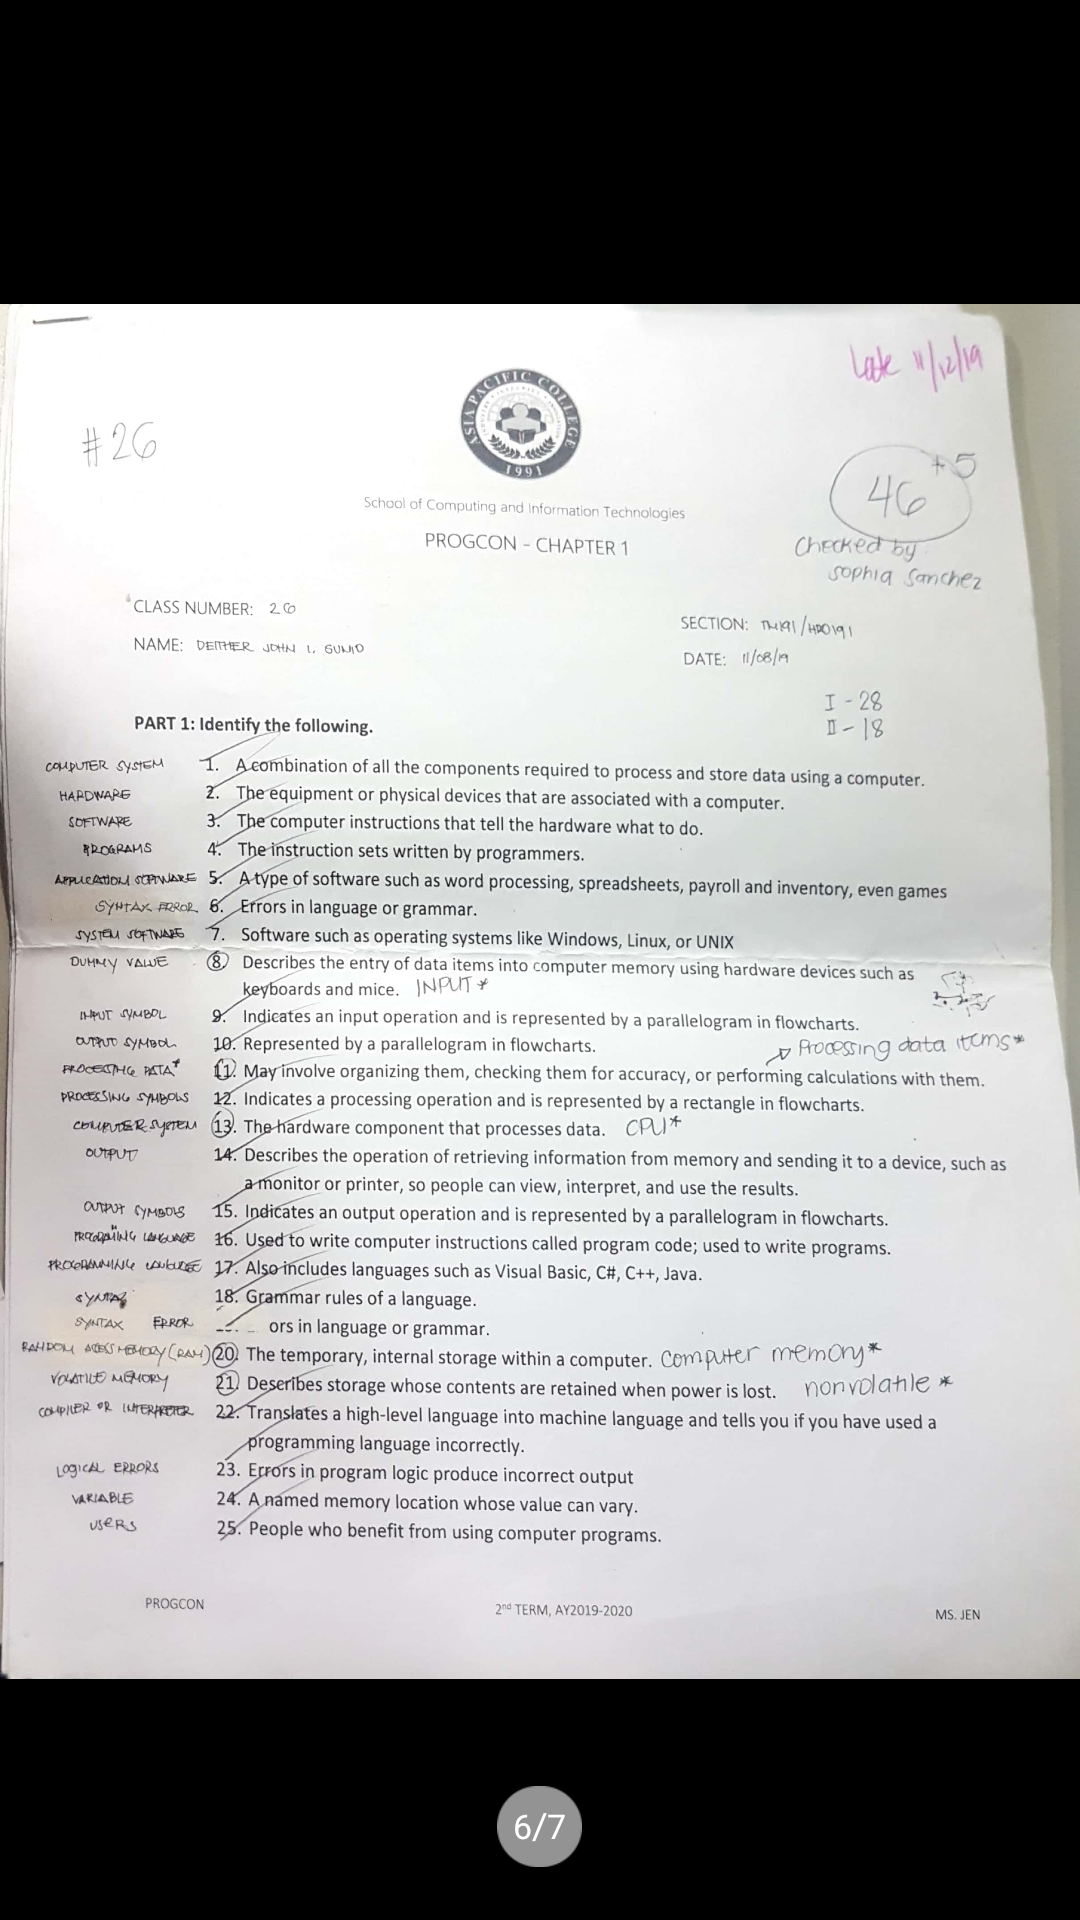 Late 11/12/19
#26
ASIA PACIFIC COLLEGE
1991
46 +5
School of Computing and Information Technologies
PROGCON - CHAPTER 1
Checked by
Sophia Sanchez
CLASS NUMBER: 26
SECTION: /
NAME: DEITHER JOHN I. GUNIO
DATE: 11/08/19
I - 28
II - 18
PART 1: Identify the following.
COMPUTER SYSTEM 1. A combination of all the components required to process and store data using a computer.
HARDWARE 2. The equipment or physical devices that are associated with a computer.
SOFTWARE 3. The computer instructions that tell the hardware what to do.
PROGRAMS 4. The instruction sets written by programmers.
APPLICATION SOFTWARE 5. A type of software such as word processing, spreadsheets, payroll and inventory, even games
SYNTAX ERROR 6. Errors in language or grammar.
SYSTEM SOFTWARE 7. Software such as operating systems like Windows, Linux, or UNIX
DUMMY VALUE 8. Describes the entry of data items into computer memory using hardware devices such as
keyboards and mice. INPUT*
INPUT SYMBOL 9. Indicates an input operation and is represented by a parallelogram in flowcharts.
OUTPUT SYMBOL 10. Represented by a parallelogram in flowcharts.
Processing data items*
PROCESSING DATA* 11. May involve organizing them, checking them for accuracy, or performing calculations with them.
PROCESSING SYMBOLS 12. Indicates a processing operation and is represented by a rectangle in flowcharts.
COMPUTER SYSTEM 13. The hardware component that processes data. CPU*
OUTPUT 14. Describes the operation of retrieving information from memory and sending it to a device, such as
a monitor or printer, so people can view, interpret, and use the results.
OUTPUT SYMBOLS 15. Indicates an output operation and is represented by a parallelogram in flowcharts.
LANGUAGE 16. Used to write computer instructions called program code; used to write programs.
PROGRAMMING 17. Also includes languages such as Visual Basic, C#, C++, Java.
SYNTAX 18. Grammar rules of a language.
SYNTAX ERROR ors in language or grammar.
RANDOM MEMORY (RAM) 20. The temporary, internal storage within a computer. Computer memory*
VOLATILE MEMORY 21. Describes storage whose contents are retained when power is lost. nonvolatile*
COMPILER OR INTERPRETER 22. Translates a high-level language into machine language and tells you if you have used a
programming language incorrectly.
LOGICAL ERRORS 23. Errors in program logic produce incorrect output
VARIABLE 24. A named memory location whose value can vary.
USERS 25. People who benefit from using computer programs.
PROGCON
2nd TERM, AY2019-2020
MS. JEN
6/7